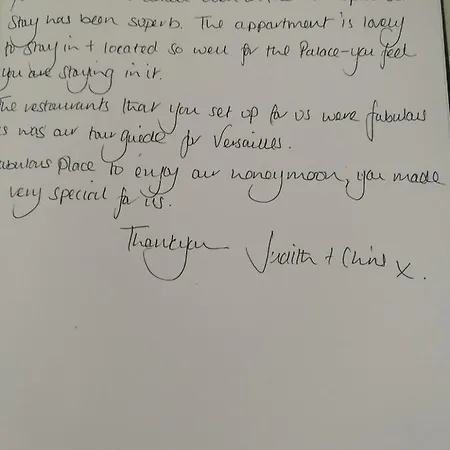 stay has been superb. The appartment is lovely
to stay in + located so well for the Palace - you feel
you are staying in it.
The restaurants that you set up for us were fabulous
as was our tour guide for Versailles.
fabulous place to enjoy our honeymoon, you made
very special for us.
Thankyou Judith + Chris x.